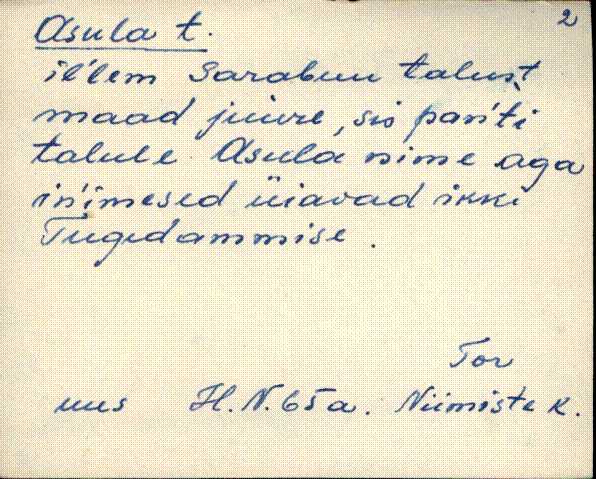 2
Asula t.
il'lem Sarabuu talust
maad juure, sis pan'ti
talule Asula nime aga
in'imesed üiavad ikki
Tugedammise.
Tor
uus H.N. 65 a. Niimiste k.